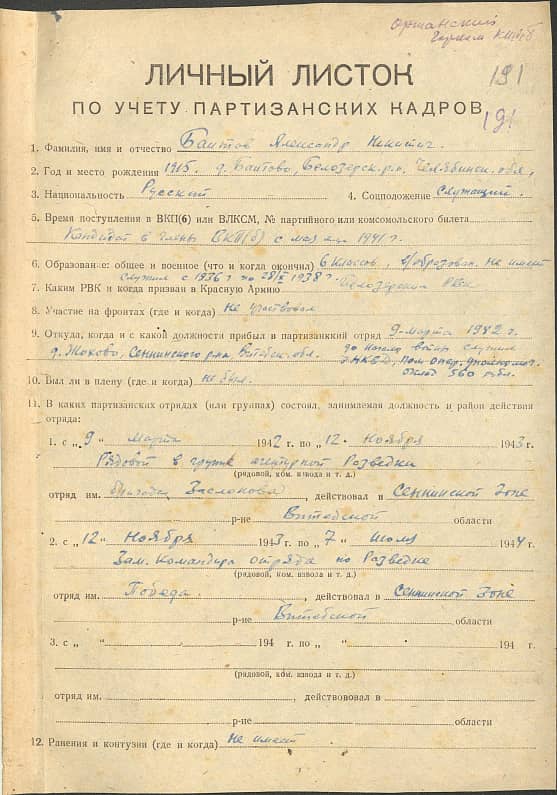 Оршанский
горком КП(б)Б
ЛИЧНЫЙ ЛИСТОК
191
ПО УЧЕТУ ПАРТИЗАНСКИХ КАДРОВ
191
1. Фамилия, имя и отчество Баитов Александр Никитич.
2. Год и место рождения 1915. д. Баитово, Белозерск. р-н. Челябинск. обл,
3. Национальность Русский 4. Соцположение Служащий.
5. Время поступления в ВКП(б) или ВЛКСМ, № партийного или комсомольского билета
Кандидат в члены ВКП(б) с мая м-ца 1941 г.
6. Образование: общее и военное (что и когда окончил) 6 классов, в/образован. не имеет
Служил с 1936 г по 28/XI 1938 г.
7. Каким РВК и когда призван в Красную Армию Белозерским РВК
8. Участие на фронтах (где и когда) не участвовал
9. Откуда, когда и с какой должности прибыл в партизанкий отряд 9-марта 1942 г.
д. Жохово, Сеннинского р-на, Витебск. обл. до начала войны служил
в НКВД, пом. опер. уполномоч.
оклад 560 рубл.
10. Был ли в плену (где и когда) не был.
11. В каких партизанских отрядах (или группах) состоял, занимаемая должность и район действия
отряда:
1. с „ 9 “ марта 1942 г. по „ 12 “ Ноября 1943 г.
Рядовой в группе агентурной Разведки
(рядовой, ком. взвода и т. д.)
отряд им. бригады Заслонова, действовал в Сеннинской Зоне
р-не Витебской области
2. с „ 12 “ Ноября 1943 г. по „ 7 “ Июля 1944 г.
Зам. Командира отряда по Разведке
(рядовой, ком. взвода и т. д.)
отряд им. Победа., действовал в Сеннинской Зоне
р-не Витебской области
3. с „ “ 194 г. по „ “ 194 г.
(рядовой, ком. взвода и т. д.)
отряд им., действововал в
р-не области
12. Ранения и контузии (где и когда) не имеет